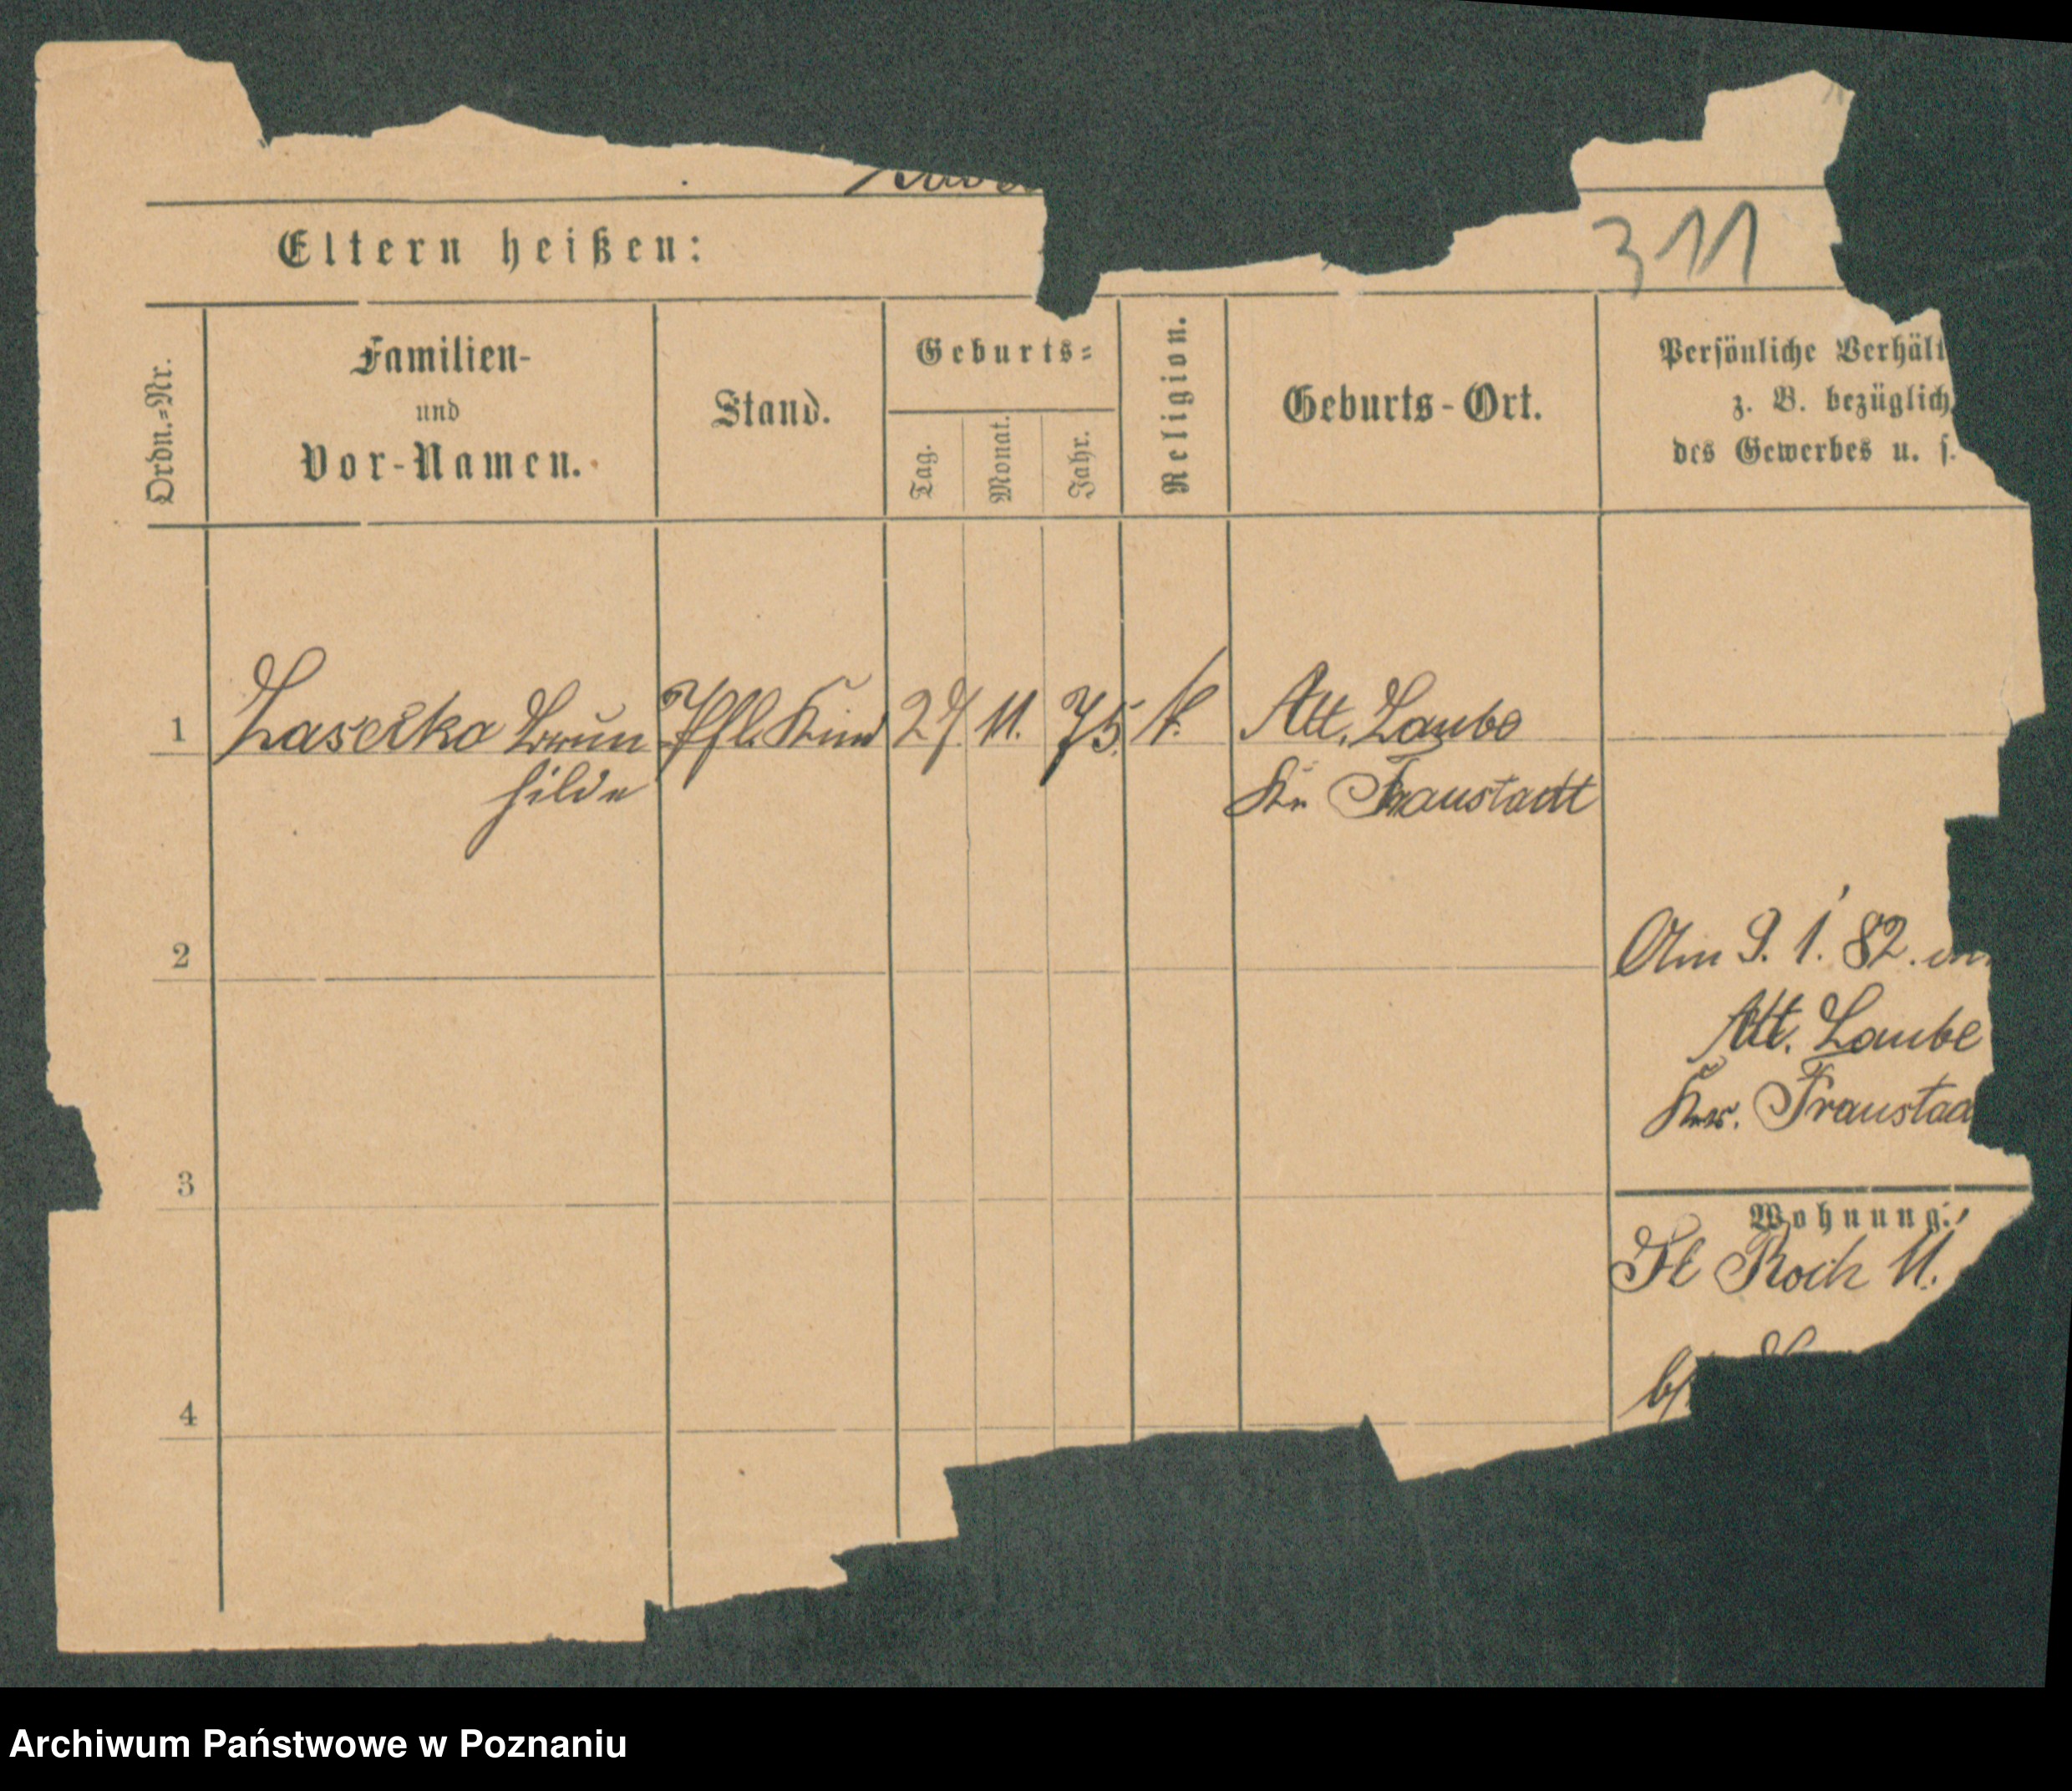 311
Eltern heißen:
Ordn.=Nr.
Familien-
und
Vor-Namen.
Stand.
Geburts=
Tag.
Monat.
Jahr.
Religion.
Geburts-Ort.
Persönliche Verhält
z. B. bezüglich
des Gewerbes u. s.
1 Laseska Brun Pfl. Kind 27 11. 75. k. Att. Laube
hilde Kr Fraustadt
2
Am 9. 1. 82. 
Att. Laube
Krs. Fraustad
3
Wohnung:
St Roch 11.
4
Archiwum Państwowe w Poznaniu